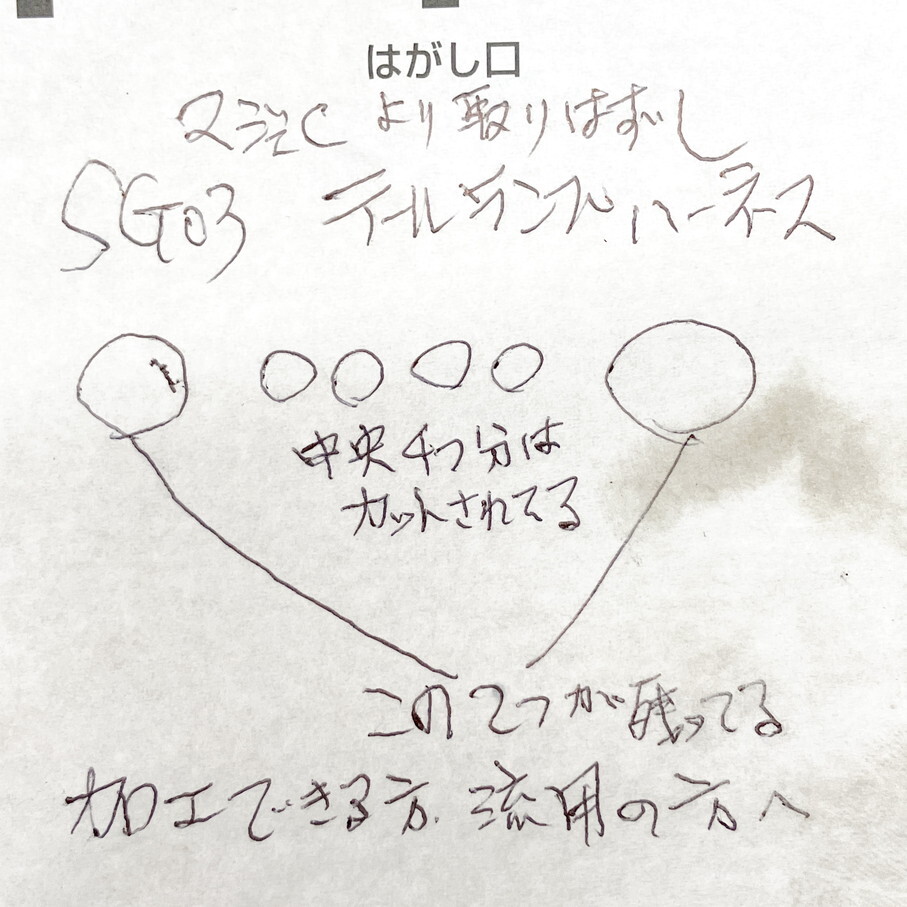 はがし口
より取りはずし
SG03 テールランプハーネス
中央4つ分は
カットされてる
この2つが残ってる
加工できる方. 流用の方へ